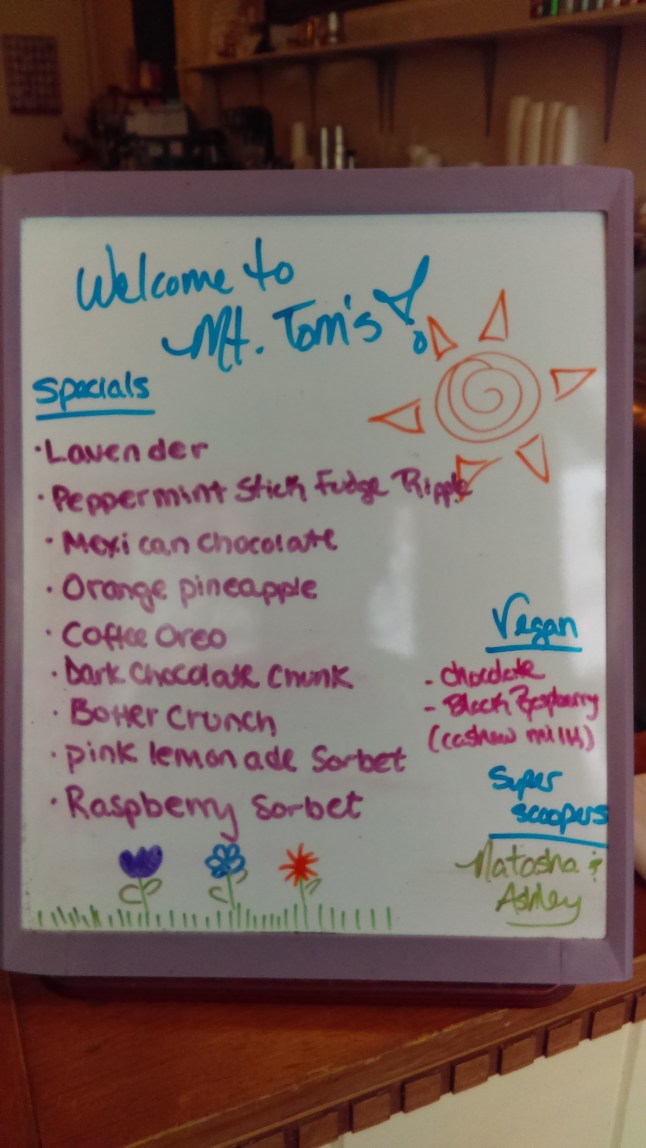 Welcome to
Mt. Tom's!
Specials
·Lavender
·Peppermint Stick Fudge Ripple
·Mexican Chocolate
·Orange pineapple
·Coffee Oreo
·Dark Chocolate Chunk
·Butter Crunch
·pink lemonade Sorbet
·Raspberry Sorbet
Vegan
- chocolate
- Black Raspberry
(cashew milk)
Super
scoopers
Natasha &
Ashley